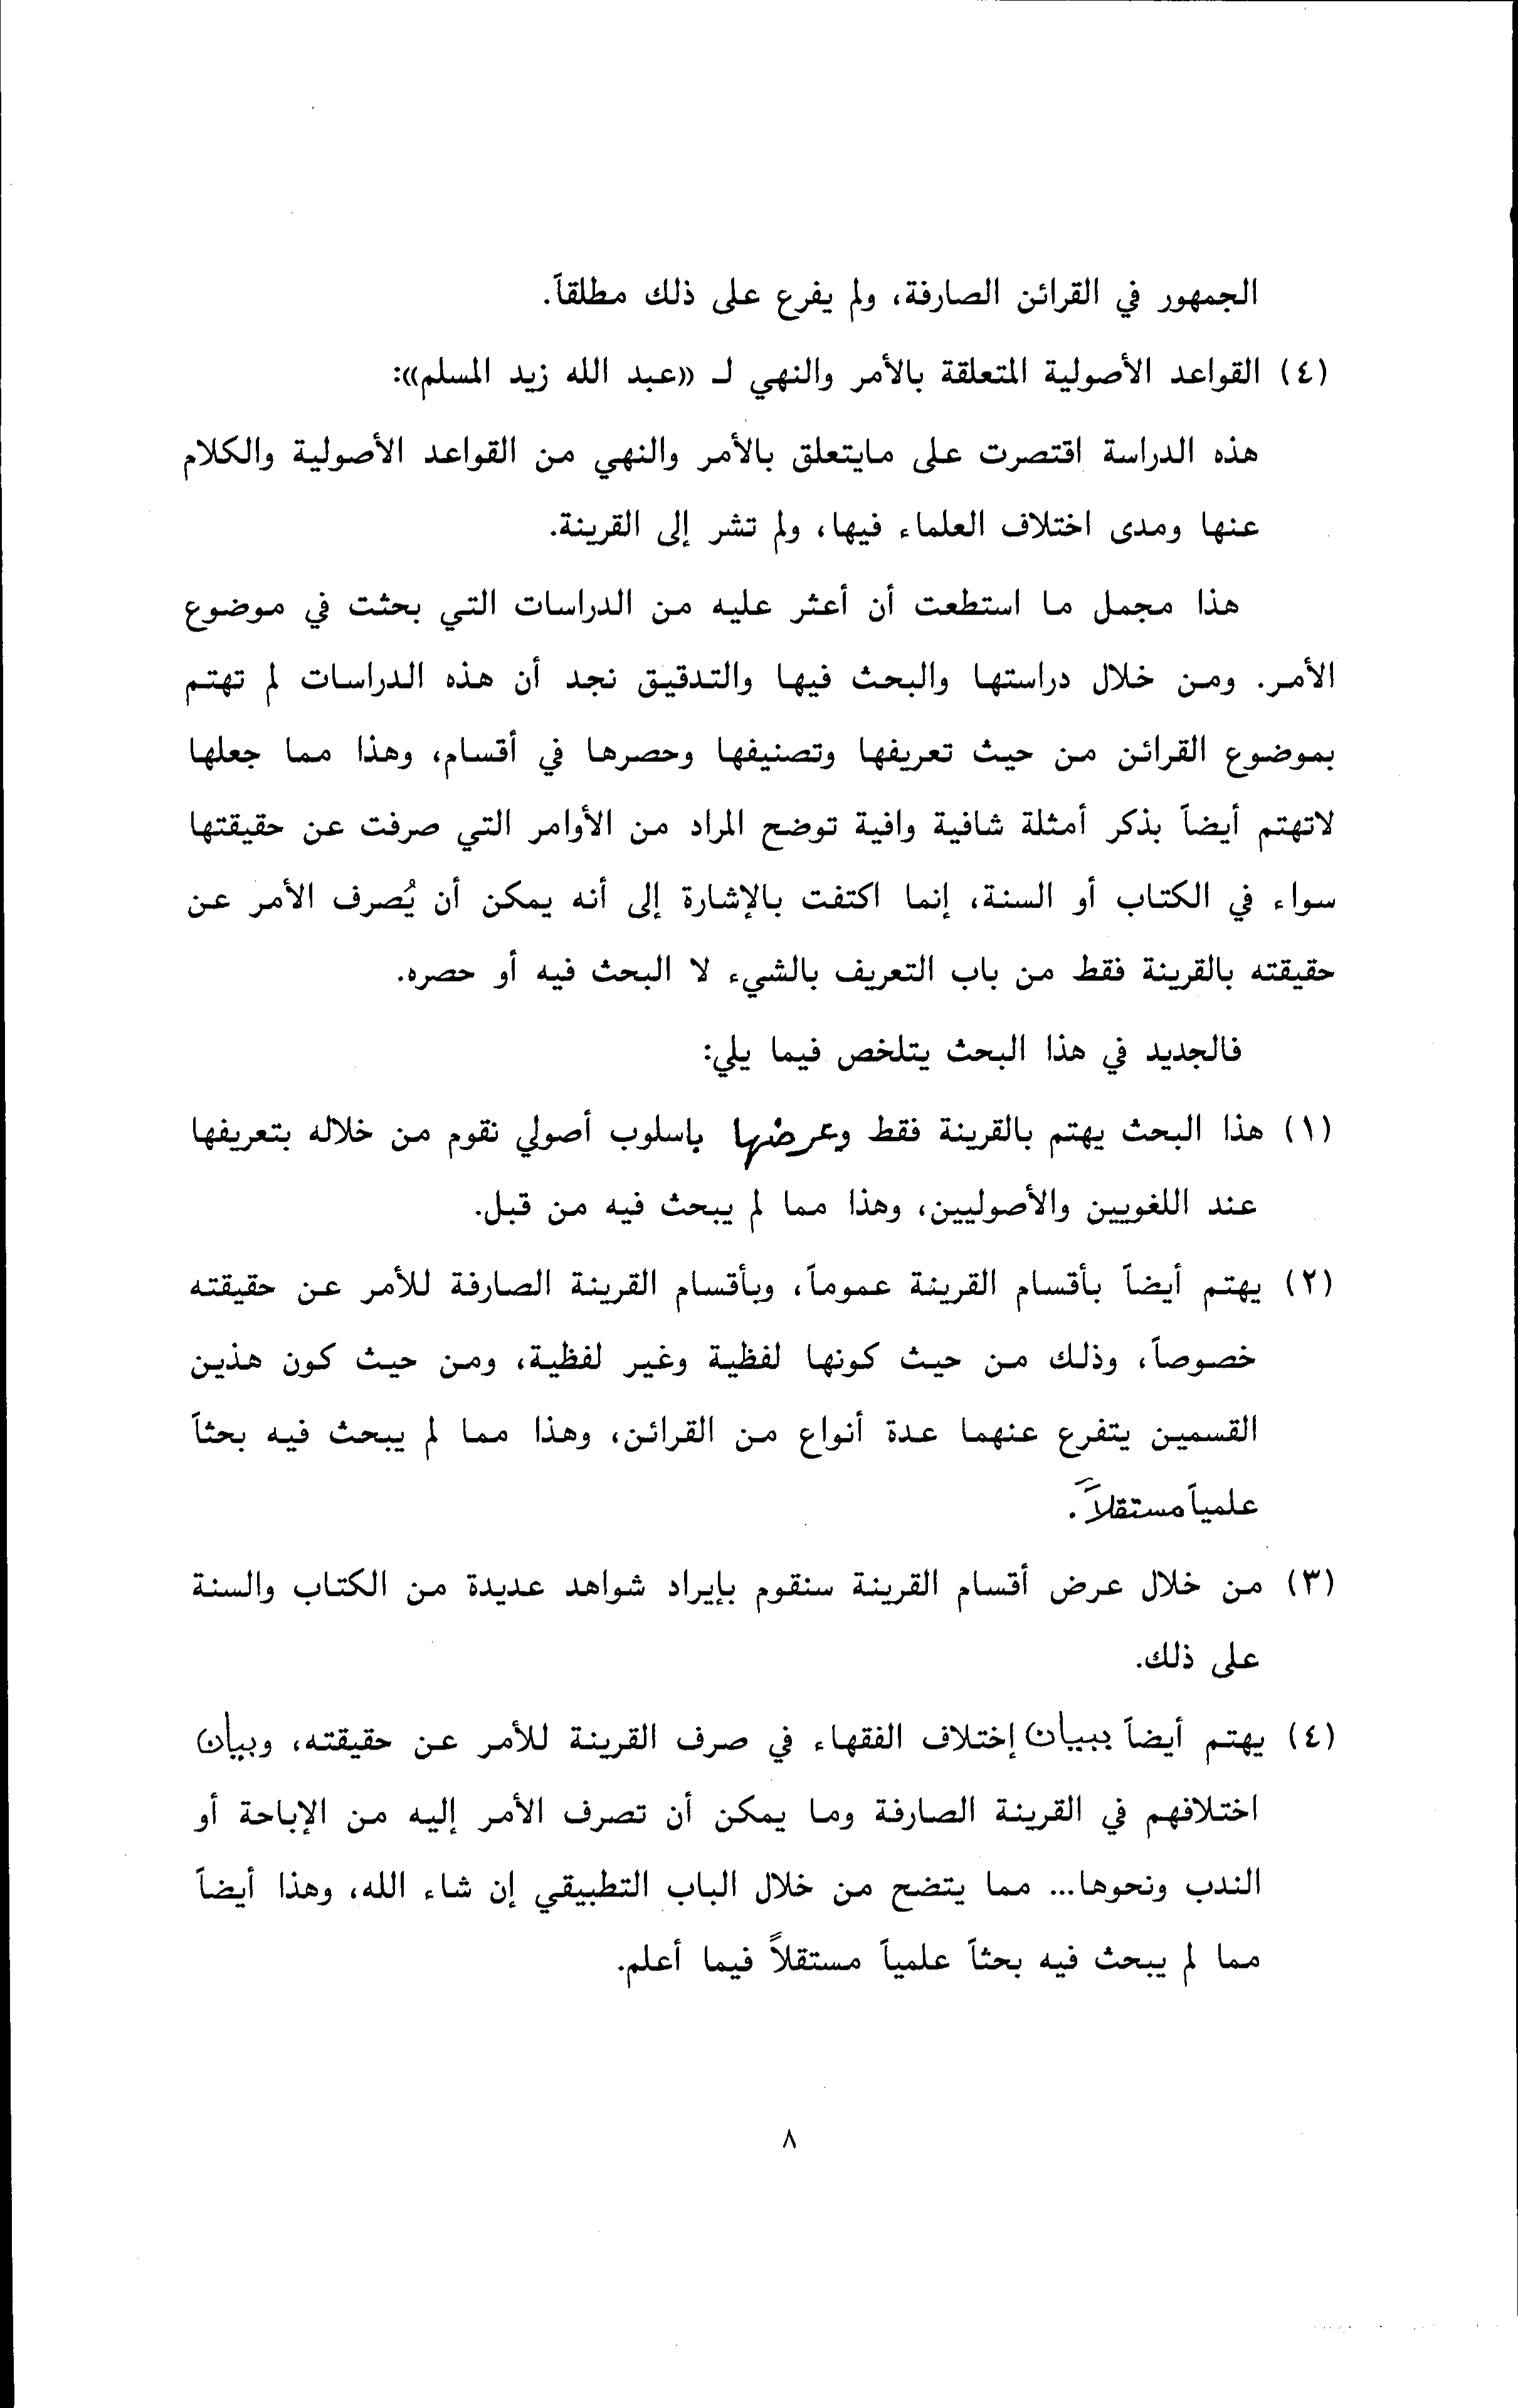 الجمهور في القرائن الصارفة، ولم يفرع على ذلك مطلقاً.
(٤) القواعد الأصولية المتعلقة بالأمر والنهي لـ «عبد الله زيد المسلم»:
هذه الدراسة اقتصرت على مايتعلق بالأمر والنهي من القواعد الأصولية والكلام
عنها ومدى اختلاف العلماء فيها، ولم تشر إلى القرينة.
هذا مجمل ما استطعت أن أعثر عليه من الدراسات التي بحثت في موضوع
الأمر. ومن خلال دراستها والبحث فيها والتدقيق نجد أن هذه الدراسات لم تهتم
بموضوع القرائن من حيث تعريفها وتصنيفها وحصرها في أقسام، وهذا مما جعلها
لاتهتم أيضاً بذكر أمثلة شافية وافية توضح المراد من الأوامر التي صرفت عن حقيقتها
سواء في الكتاب أو السنة، إنما اكتفت بالإشارة إلى أنه يمكن أن يُصرف الأمر عن
حقيقته بالقرينة فقط من باب التعريف بالشيء لا البحث فيه أو حصره.
فالجديد في هذا البحث يتلخص فيما يلي:
(١) هذا البحث يهتم بالقرينة فقط وعرضها بإسلوب أصولي نقوم من خلاله بتعريفها
عند اللغويين والأصوليين، وهذا مما لم يبحث فيه من قبل.
(٢) يهتم أيضاً بأقسام القرينة عموماً، وبأقسام القرينة الصارفة للأمر عن حقيقته
خصوصاً، وذلك من حيث كونها لفظية وغير لفظية، ومن حيث كون هذين
القسمين يتفرع عنهما عدة أنواع من القرائن، وهذا مما لم يبحث فيه بحثاً
علمياً مستقلاً.
(٣) من خلال عرض أقسام القرينة سنقوم بإيراد شواهد عديدة من الكتاب والسنة
على ذلك.
(٤) يهتم أيضاً ببيان إختلاف الفقهاء في صرف القرينة للأمر عن حقيقته، وبيان
اختلافهم في القرينة الصارفة وما يمكن أن تصرف الأمر إليه من الإباحة أو
الندب ونحوها... مما يتضح من خلال الباب التطبيقي إن شاء الله، وهذا أيضاً
مما لم يبحث فيه بحثاً علمياً مستقلاً فيما أعلم.
٨